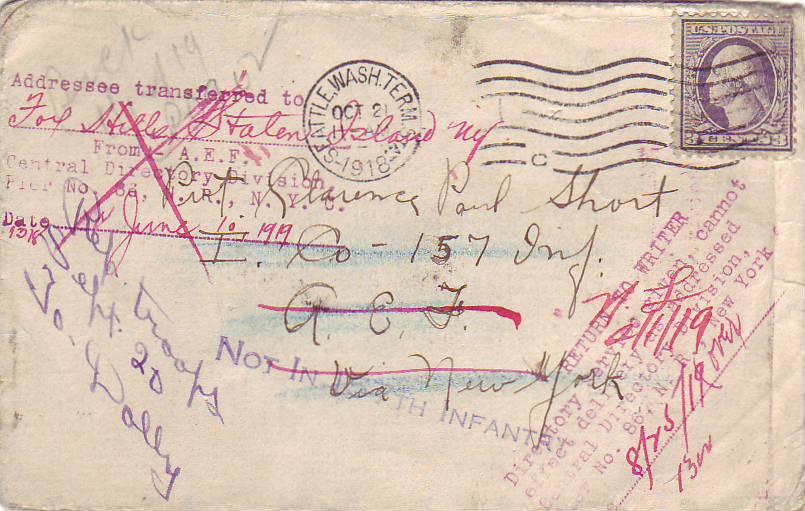 U.S. POSTAGE
CENTS
SEATTLE, WASH. TERM. STA.
OCT 2
1918
Addressee transferred to
Fox Hills, Staten Island NY
From A.E.F.
Central Directory Division
Pier No. 86, N.R., N.Y.C.
Date June 10, 1919
13K
Pvt Clarence Paul Short
I. Co - 157 Inf.
A. E. F.
Via New York
NOT IN TH INFANTRY
troops
20
RETURN TO WRITER
Directory as given, cannot
effect delivery as addressed
Central Directory Division,
No. 86, N. R., New York
8/25/19 over